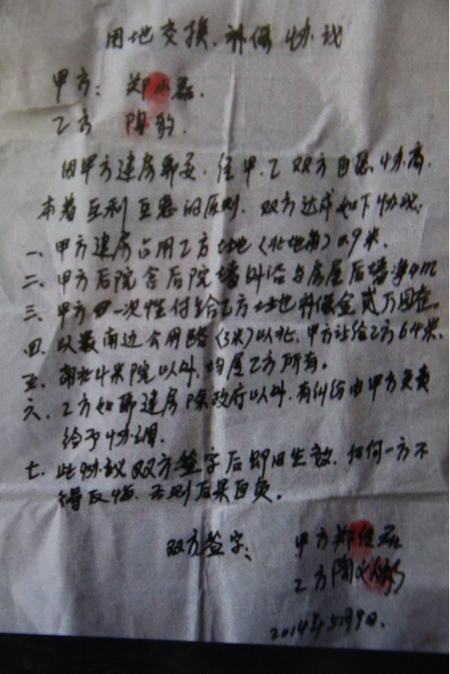 用地交换、补偿协议
甲方：郑磊.
乙方 陶
因甲方建房需要、经甲、乙双方自愿协商，
本着互利互惠的原则、双方达成如下协议：
一、甲方建房占用乙方土地（北地角）0.9米.
二、甲方后院含后院墙外沿与房屋后墙净4m
三、甲方一次性付给乙方土地补偿金贰万圆整。
四、以最南边公用路（3米）以北，甲方让给乙方6.4米.
五、南北4米院以外，均属乙方所有。
六、乙方如要建房除政府以外，有纠纷由甲方负责
给予协调.
七、此协议双方签字后即日生效、任何一方不
得反悔，否则后果自负。
双方签字： 甲方郑磊
乙方陶
2014年5月9日.